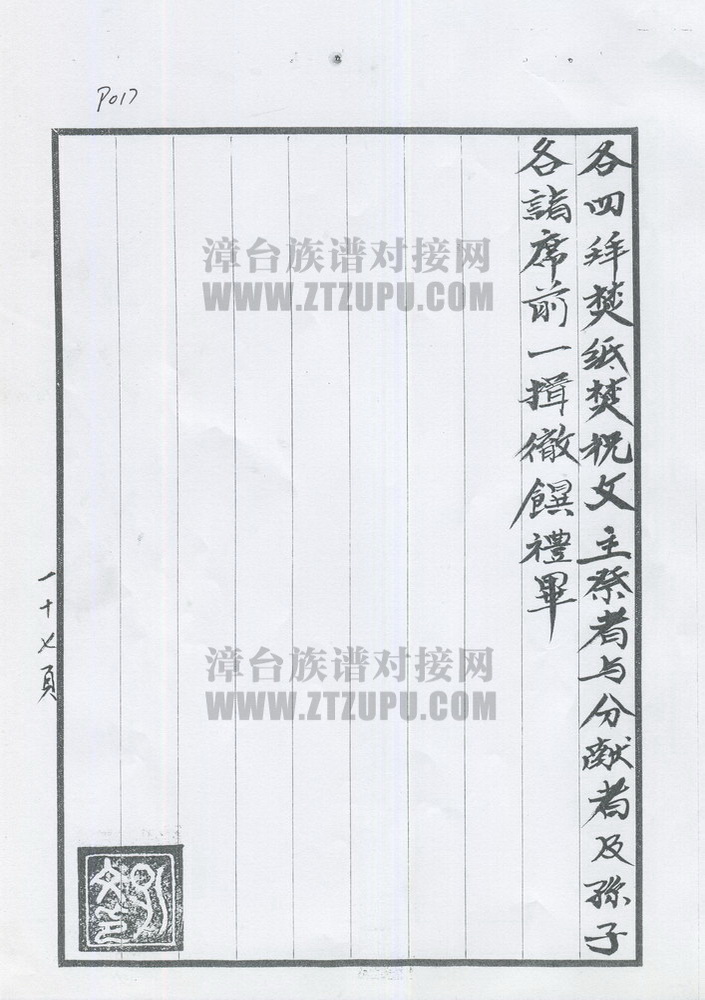 P017
各四拜焚纸焚祝文主祭者与分献者及孫子
各詣席前一揖徹饌禮畢
一十七頁
漳台族谱对接网
WWW.ZTZUPU.COM
漳台族谱对接网
WWW.ZTZUPU.COM